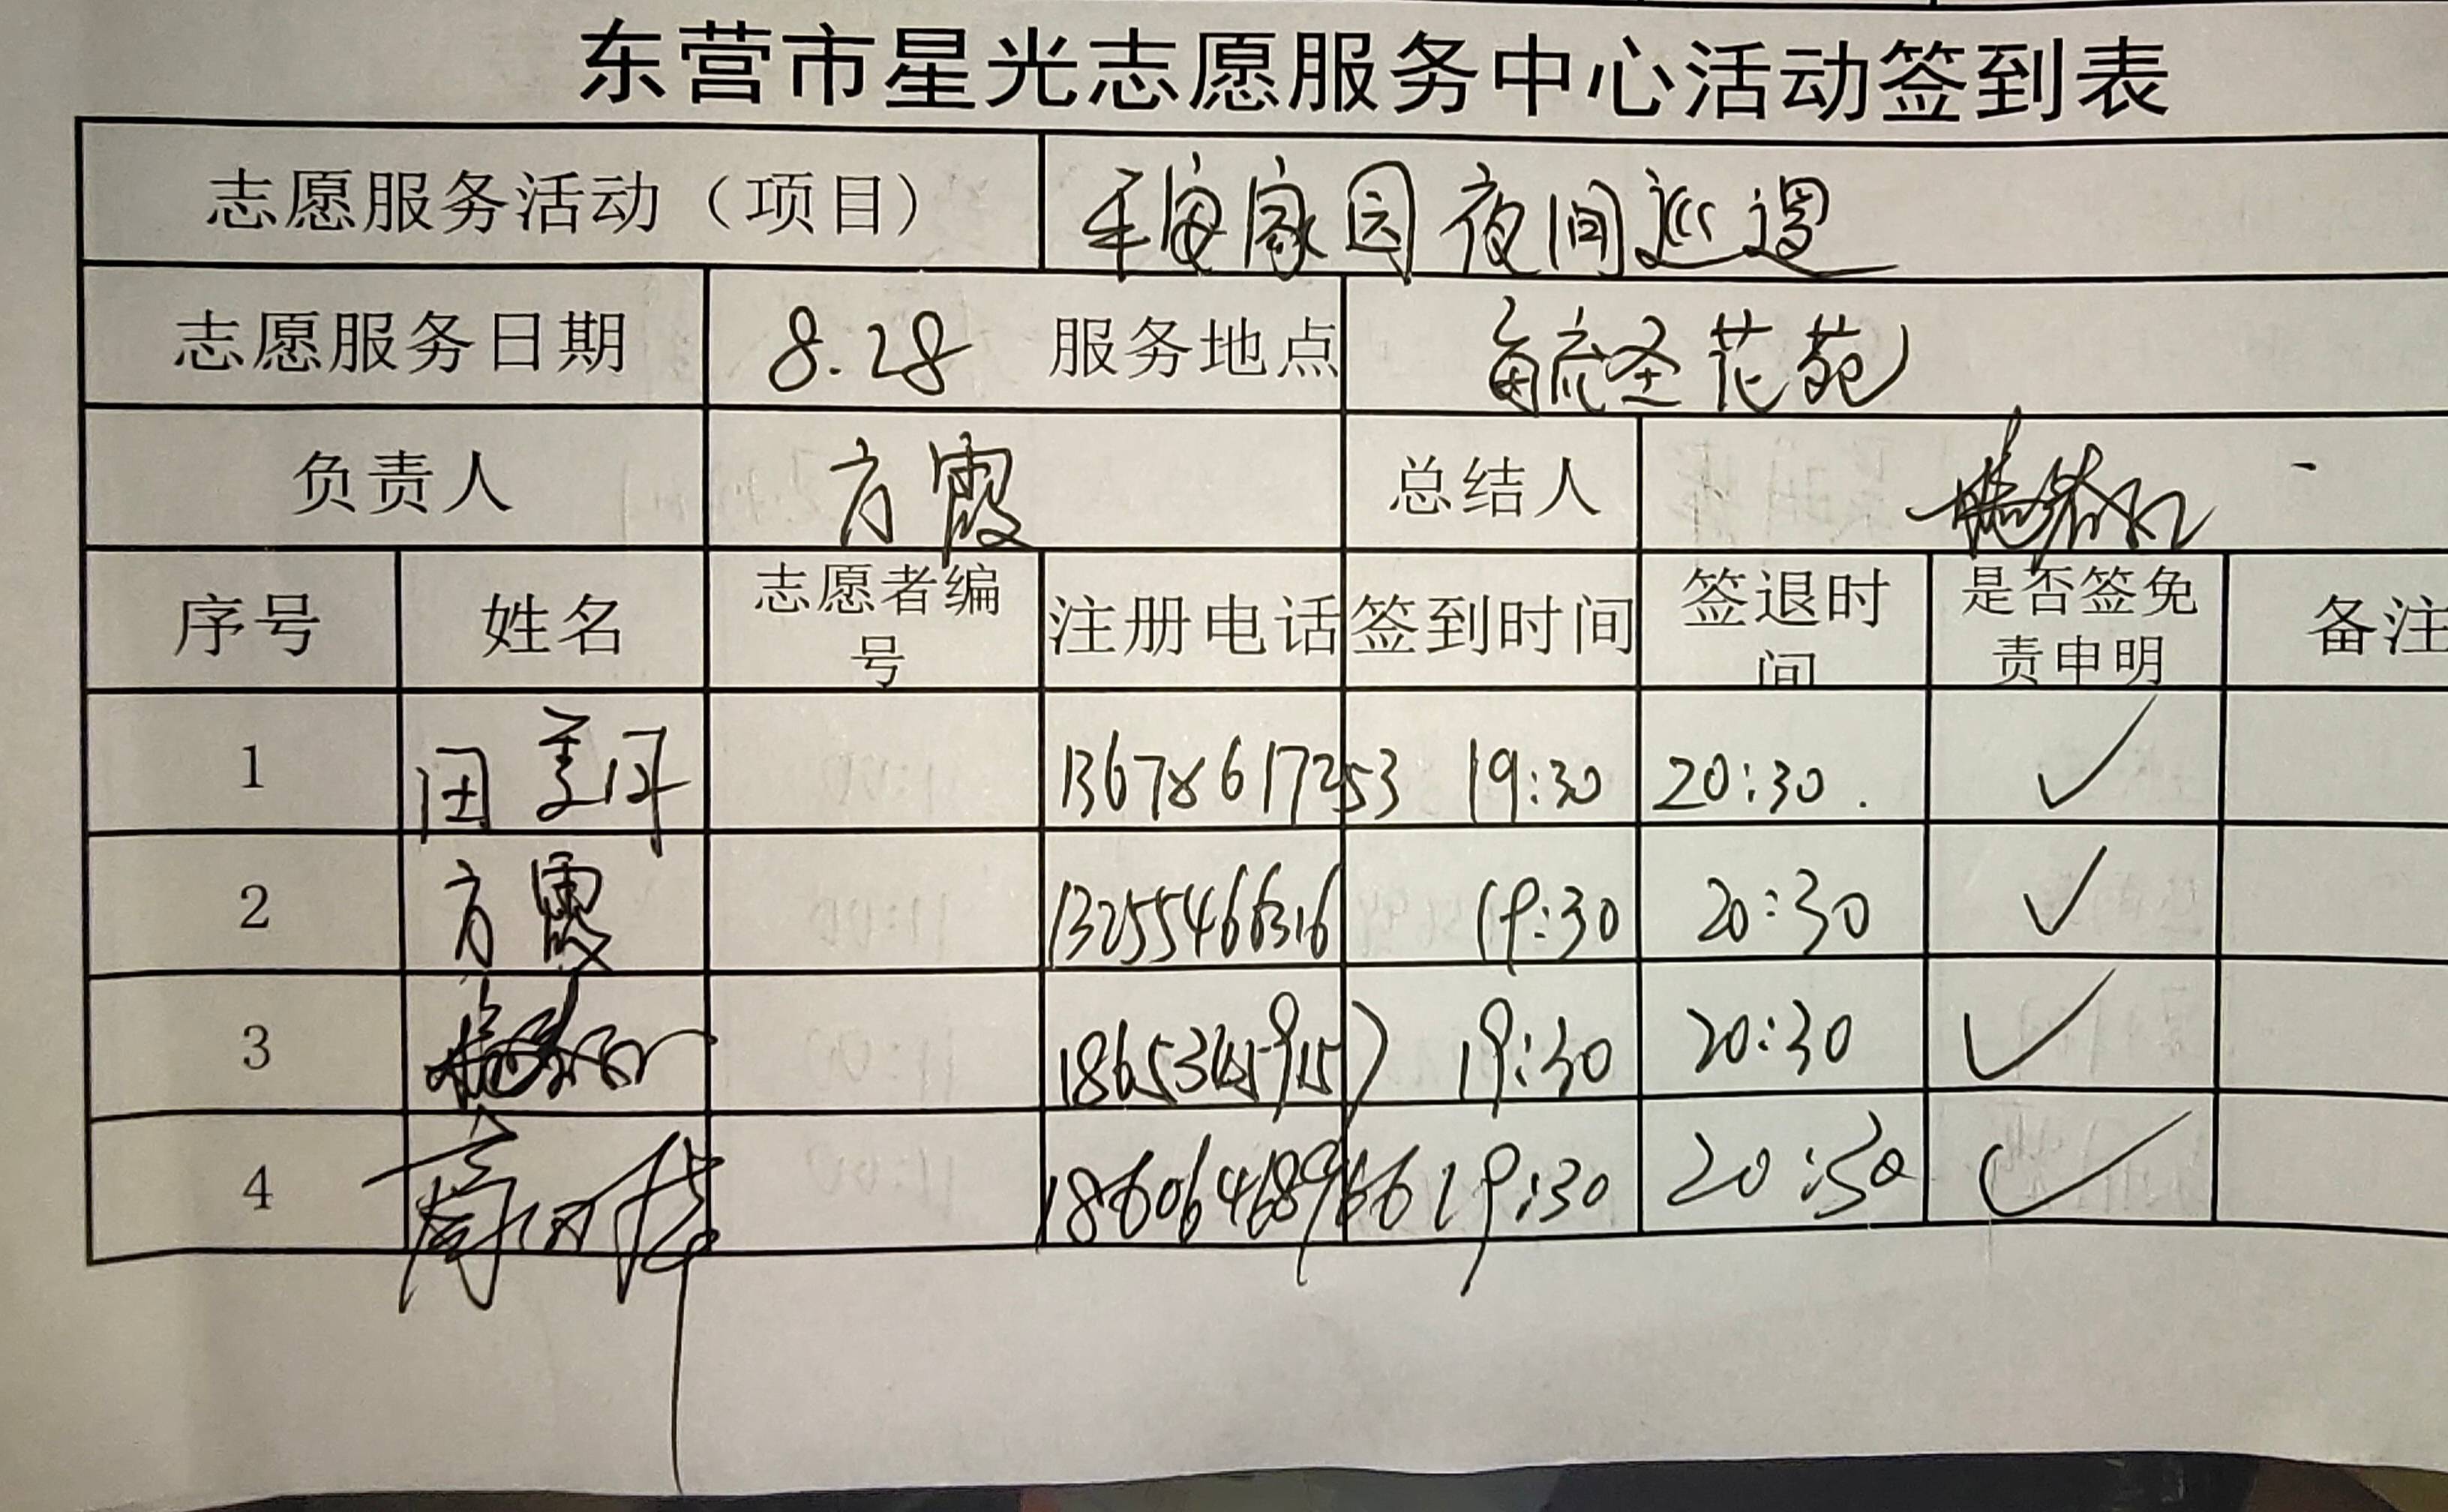 东营市星光志愿服务中心活动签到表
志愿服务活动（项目） 平安家园夜间巡逻
志愿服务日期 8.28 服务地点 花苑
负责人 方霞 总结人
序号 姓名 志愿者编号 注册电话 签到时间 签退时间 是否签免责申明 备注
1 13678617253 19:30 20:30. ✓
2 方霞 13255466316 19:30 20:30 ✓
3 19:30 20:30 ✓
4 18606468966 19:30 20:30 ✓